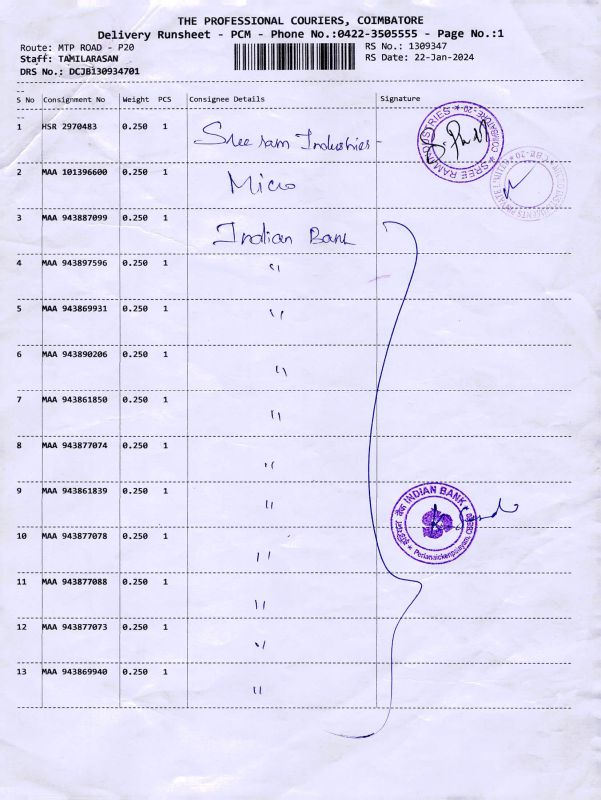 THE PROFESSIONAL COURIERS, COIMBATORE
Delivery Runsheet - PCM - Phone No.:0422-3505555 - Page No.:1
Route: MTP ROAD - P20
RS No.: 1309347
Staff: TAMILARASAN
RS Date: 22-Jan-2024
DRS No.: DCJB130934701
S No Consignment No Weight PCS Consignee Details Signature
1 HSR 2970483 0.250 1 Sree ram Industries -
SREE RAM INDUSTRIES * COIMBATORE-20 *
2 MAA 101396600 0.250 1 Micro
3 MAA 943887099 0.250 1 Indian Bank
4 MAA 943897596 0.250 1 "
5 MAA 943869931 0.250 1 "
6 MAA 943890206 0.250 1 "
7 MAA 943861850 0.250 1 "
8 MAA 943877074 0.250 1 "
9 MAA 943861839 0.250 1 "
INDIAN BANK
10 MAA 943877078 0.250 1 "
11 MAA 943877088 0.250 1 "
12 MAA 943877073 0.250 1 "
13 MAA 943869940 0.250 1 "